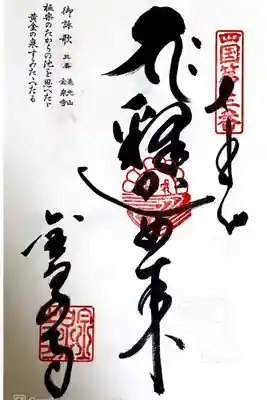 四国第三番
奉拝
釋迦如来
金泉寺
御詠歌 三番 亀光山 金泉寺
極楽のたからの池を思へたゞ
黄金の泉すみたゝへたる